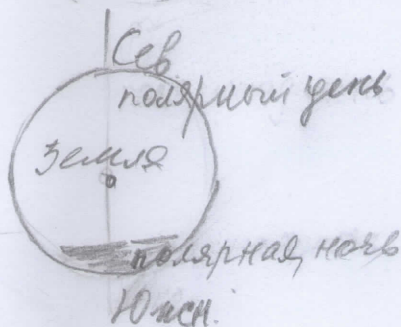 Сев
полярный день
Земля
полярная ночь
Южн.